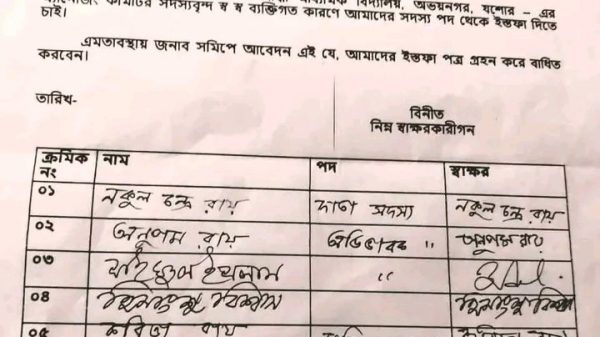 ম্যানেজিং কমিটির সদস্যবৃন্দ স্ব স্ব ব্যক্তিগত কারণে আমাদের সদস্য পদ থেকে ইস্তফা দিতে
বিদ্যালয়, অভয়নগর, যশোর – এর
চাই।
এমতাবস্থায় জনাব সমিপে আবেদন এই যে, আমাদের ইস্তফা পত্র গ্রহন করে বাধিত
করবেন।
তারিখ-
বিনীত
নিম্ন স্বাক্ষরকারীগন
ক্রমিক নাম পদ স্বাক্ষর
নং
০১ নকুল চন্দ্র রায় দাতা সদস্য নকুল চন্দ্র রায়
০২ অনুপম রায় অভিভাবক " অনুপম রায়
০৩ "
০৪ বিশ্বাস
০৫ রায়